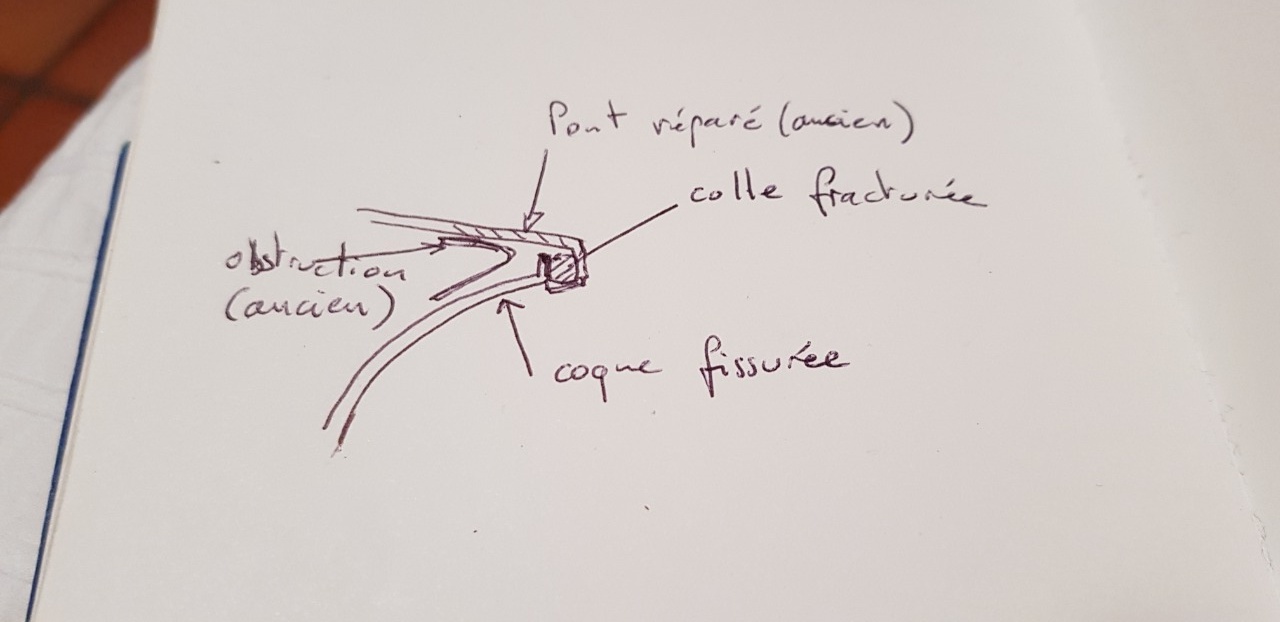 Pont réparé (ancien)
colle fracturée
obstruction
(ancien)
coque fissurée